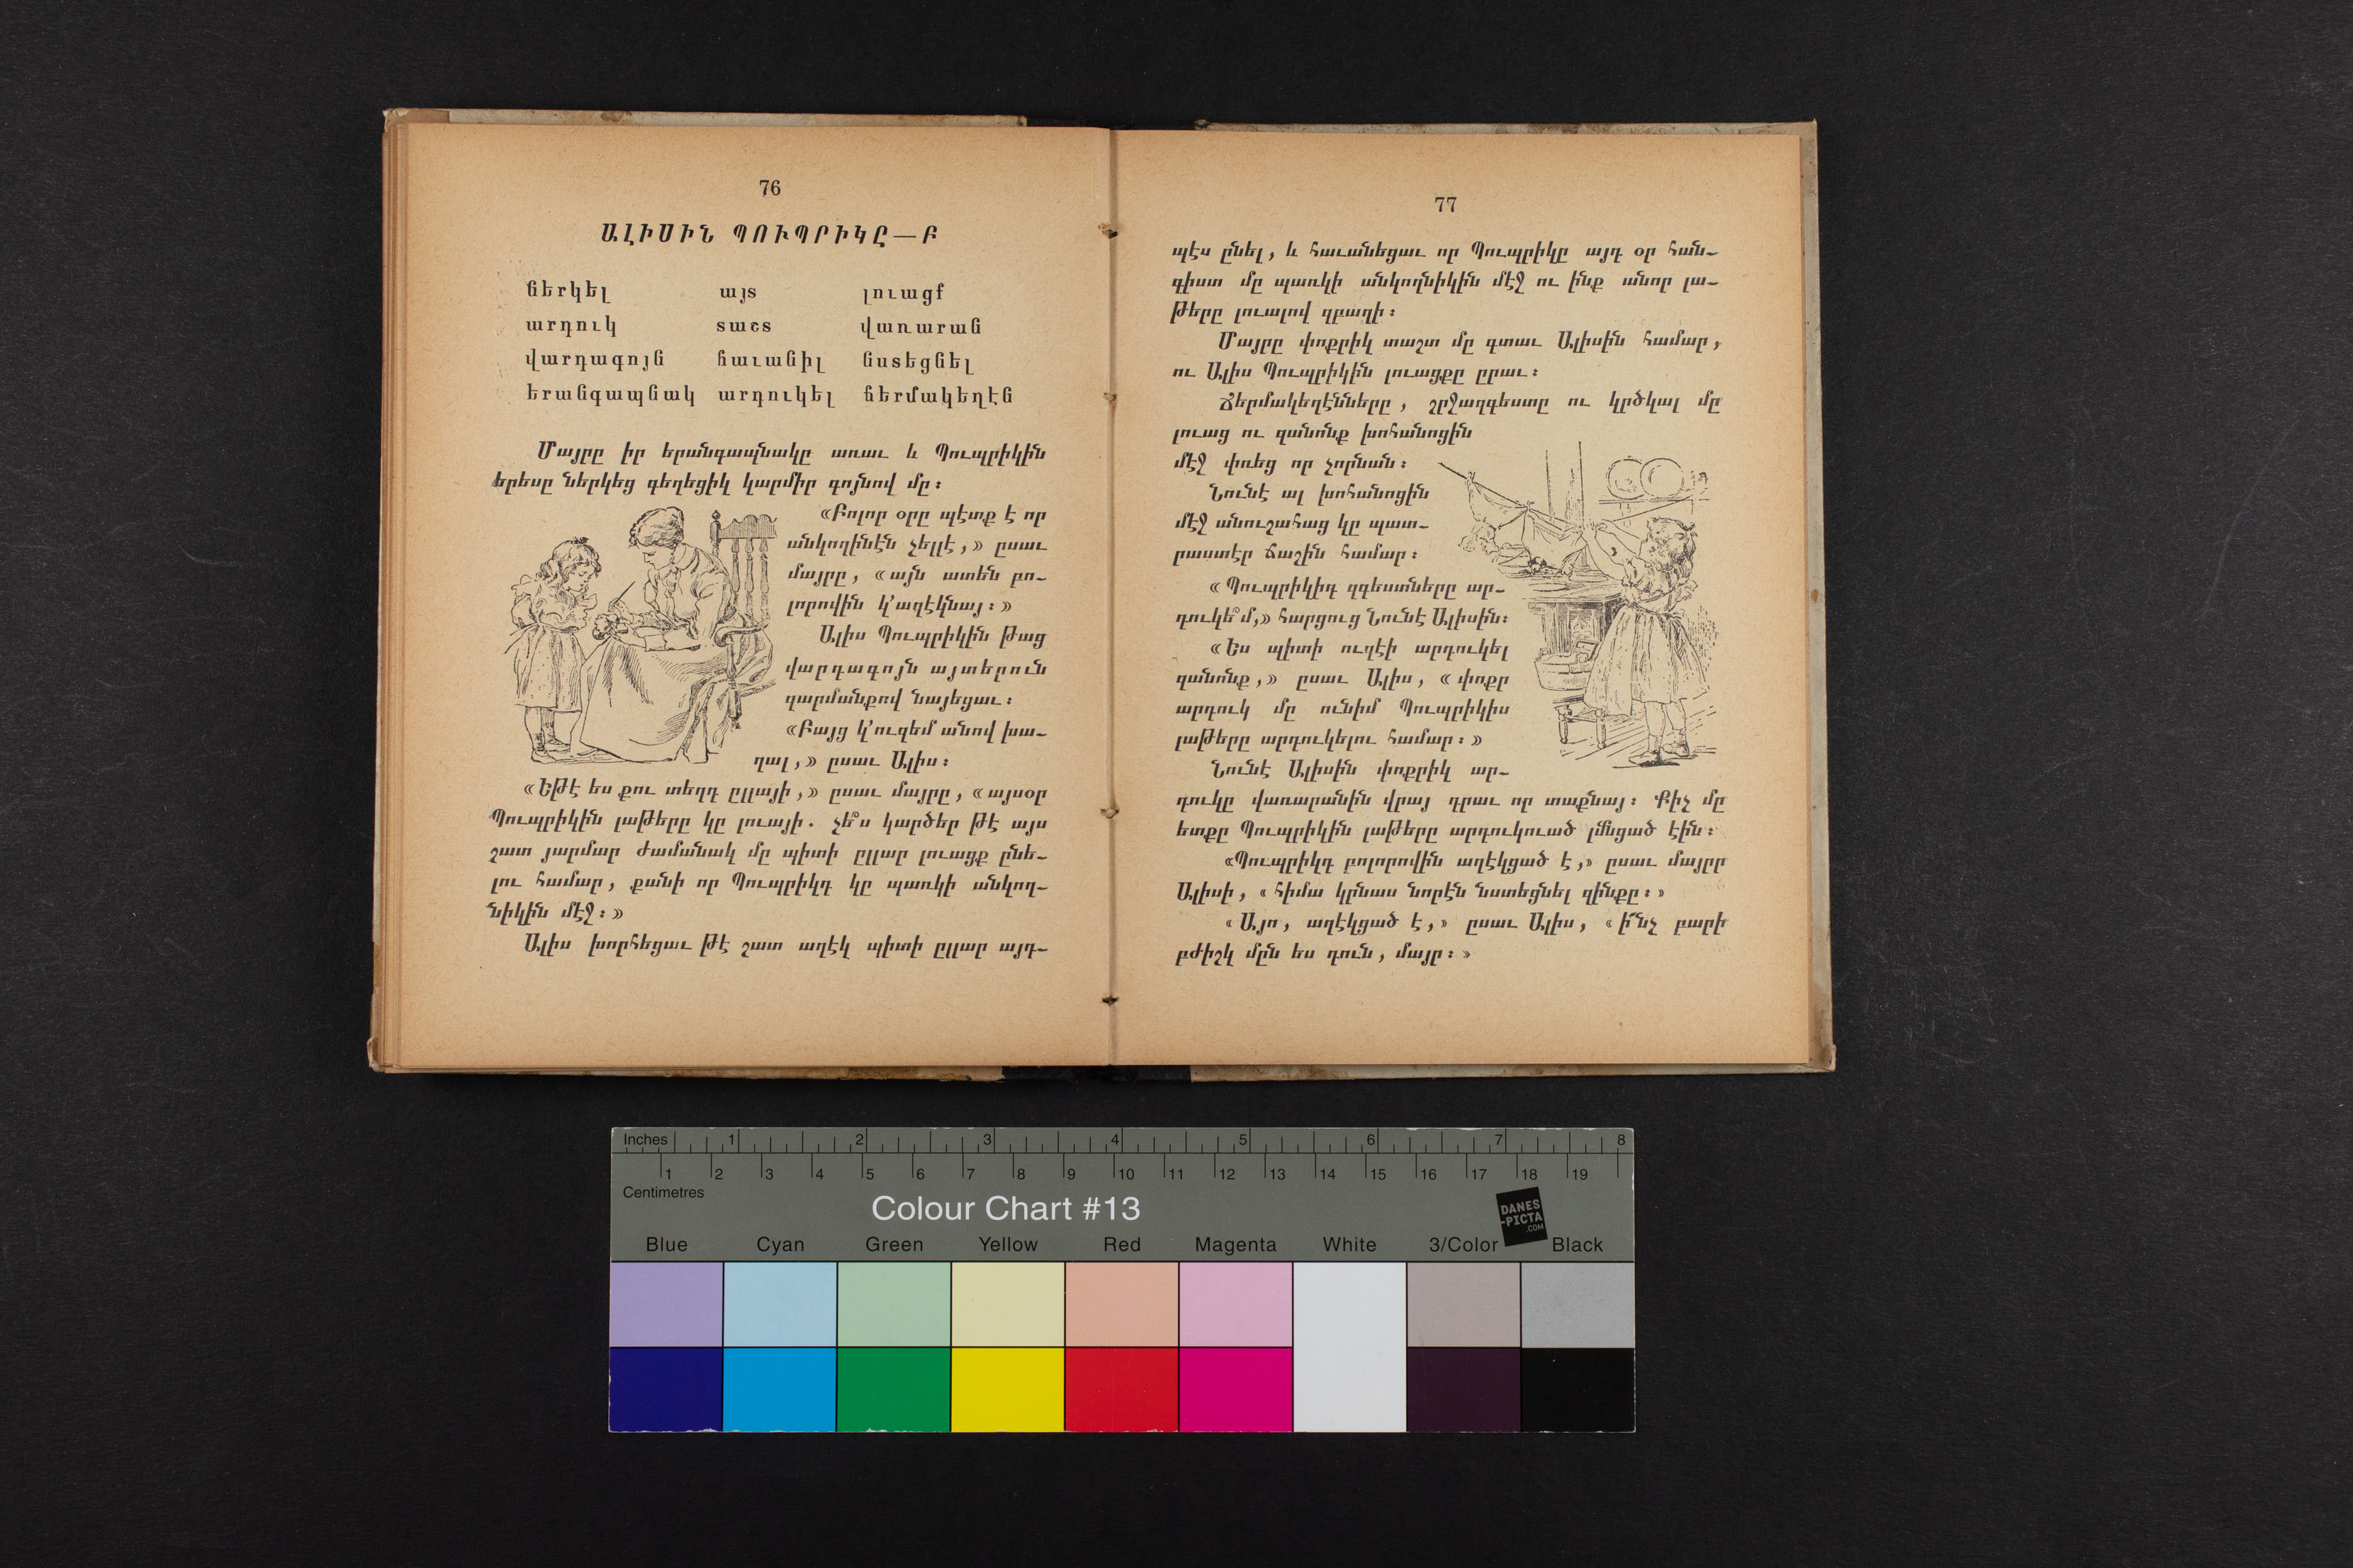 76
ԱԼԻՍԻՆ ՊՈՒՊՐԻԿԸ — Բ
ներկել այտ լուացք
արդուկ տաշտ վառարան
վարդագոյն հաւանիլ նստեցնել
երանգապնակ արդուկել ճերմակեղէն
Մայրը իր երանգապնակը առաւ և Պուպրիկին
երեսը ներկեց գեղեցիկ կարմիր գոյնով մը։
«Բոլոր օրը պէտք է որ
անկողինէն չելլէ,» ըսաւ
մայրը, «այն ատեն բո-
լորովին կ’աղէկնայ։»
Ալիս Պուպրիկին թաց
վարդագոյն այտերուն
զարմանքով նայեցաւ։
«Բայց կ’ուզեմ անով խա-
ղալ,» ըսաւ Ալիս։
«Եթէ ես քու տեղդ ըլլայի,» ըսաւ մայրը, «այսօր
Պուպրիկին լաթերը կը լուայի. չե՞ս կարծեր թէ այս
շատ յարմար ժամանակ մը պիտի ըլլար լուացք ընե-
լու համար, քանի որ Պուպրիկդ կը պառկի անկող-
նիկին մէջ։»
Ալիս խորհեցաւ թէ շատ աղէկ պիտի ըլլար այդ-
77
պէս ընել, և հաւանեցաւ որ Պուպրիկը այդ օր հան-
գիստ մը պառկի անկողնիկին մէջ ու ինք անոր լա-
թերը լուալով զբաղի։
Մայրը փոքրիկ տաշտ մը գտաւ Ալիսին համար,
ու Ալիս Պուպրիկին լուացքը ըրաւ։
Ճերմակեղէնները, շրջազգեստը ու կրծկալ մը
լուաց ու զանոնք խոհանոցին
մէջ փռեց որ չորնան։
Նունէ ալ խոհանոցին
մէջ անուշահաց կը պատ-
րաստէր ճաշին համար։
«Պուպրիկիդ զգեստները ար-
դուկե՞մ,» հարցուց Նունէ Ալիսին։
«Ես պիտի ուզէի արդուկել
զանոնք,» ըսաւ Ալիս, «փոքր
արդուկ մը ունիմ Պուպրիկիս
լաթերը արդուկելու համար։»
Նունէ Ալիսին փոքրիկ ար-
դուկը վառարանին վրայ դրաւ որ տաքնայ։ Քիչ մը
ետքը Պուպրիկին լաթերը արդուկուած լմնցած էին։
«Պուպրիկդ բոլորովին աղէկցած է,» ըսաւ մայրը
Ալիսի, «հիմա կրնաս նորէն նստեցնել զինքը։»
«Այո, աղէկցած է,» ըսաւ Ալիս, «ի՜նչ բարի
բժիշկ մըն ես դուն, մայր։»
Inches 1 2 3 4 5 6 7 8
1 2 3 4 5 6 7 8 9 10 11 12 13 14 15 16 17 18 19
Centimetres
Colour Chart #13
DANES
-PICTA
.COM
Blue Cyan Green Yellow Red Magenta White 3/Color Black